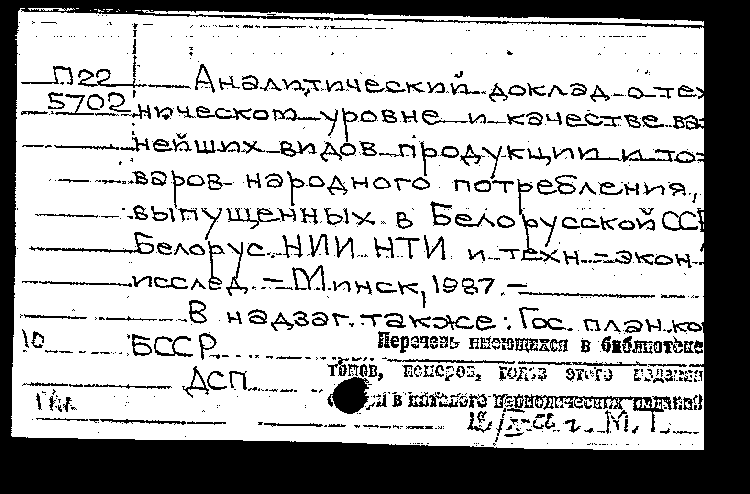 П22 Аналитический доклад о тех
5702 ническом уровне и качестве ва
нейших видов продукции и то=
варов народного потребления,
выпущенных в Белорусской ССР
Белорус. НИИ НТИ и техн.=экон
исслед. – Минск, 1987. –
В надзаг. также: Гос. план. ко
10 БССР Перечень имеющихся в библиотеке
ДСП томов, номеров, годов этого издания
в каталоге периодических изданий
г. М. Т.